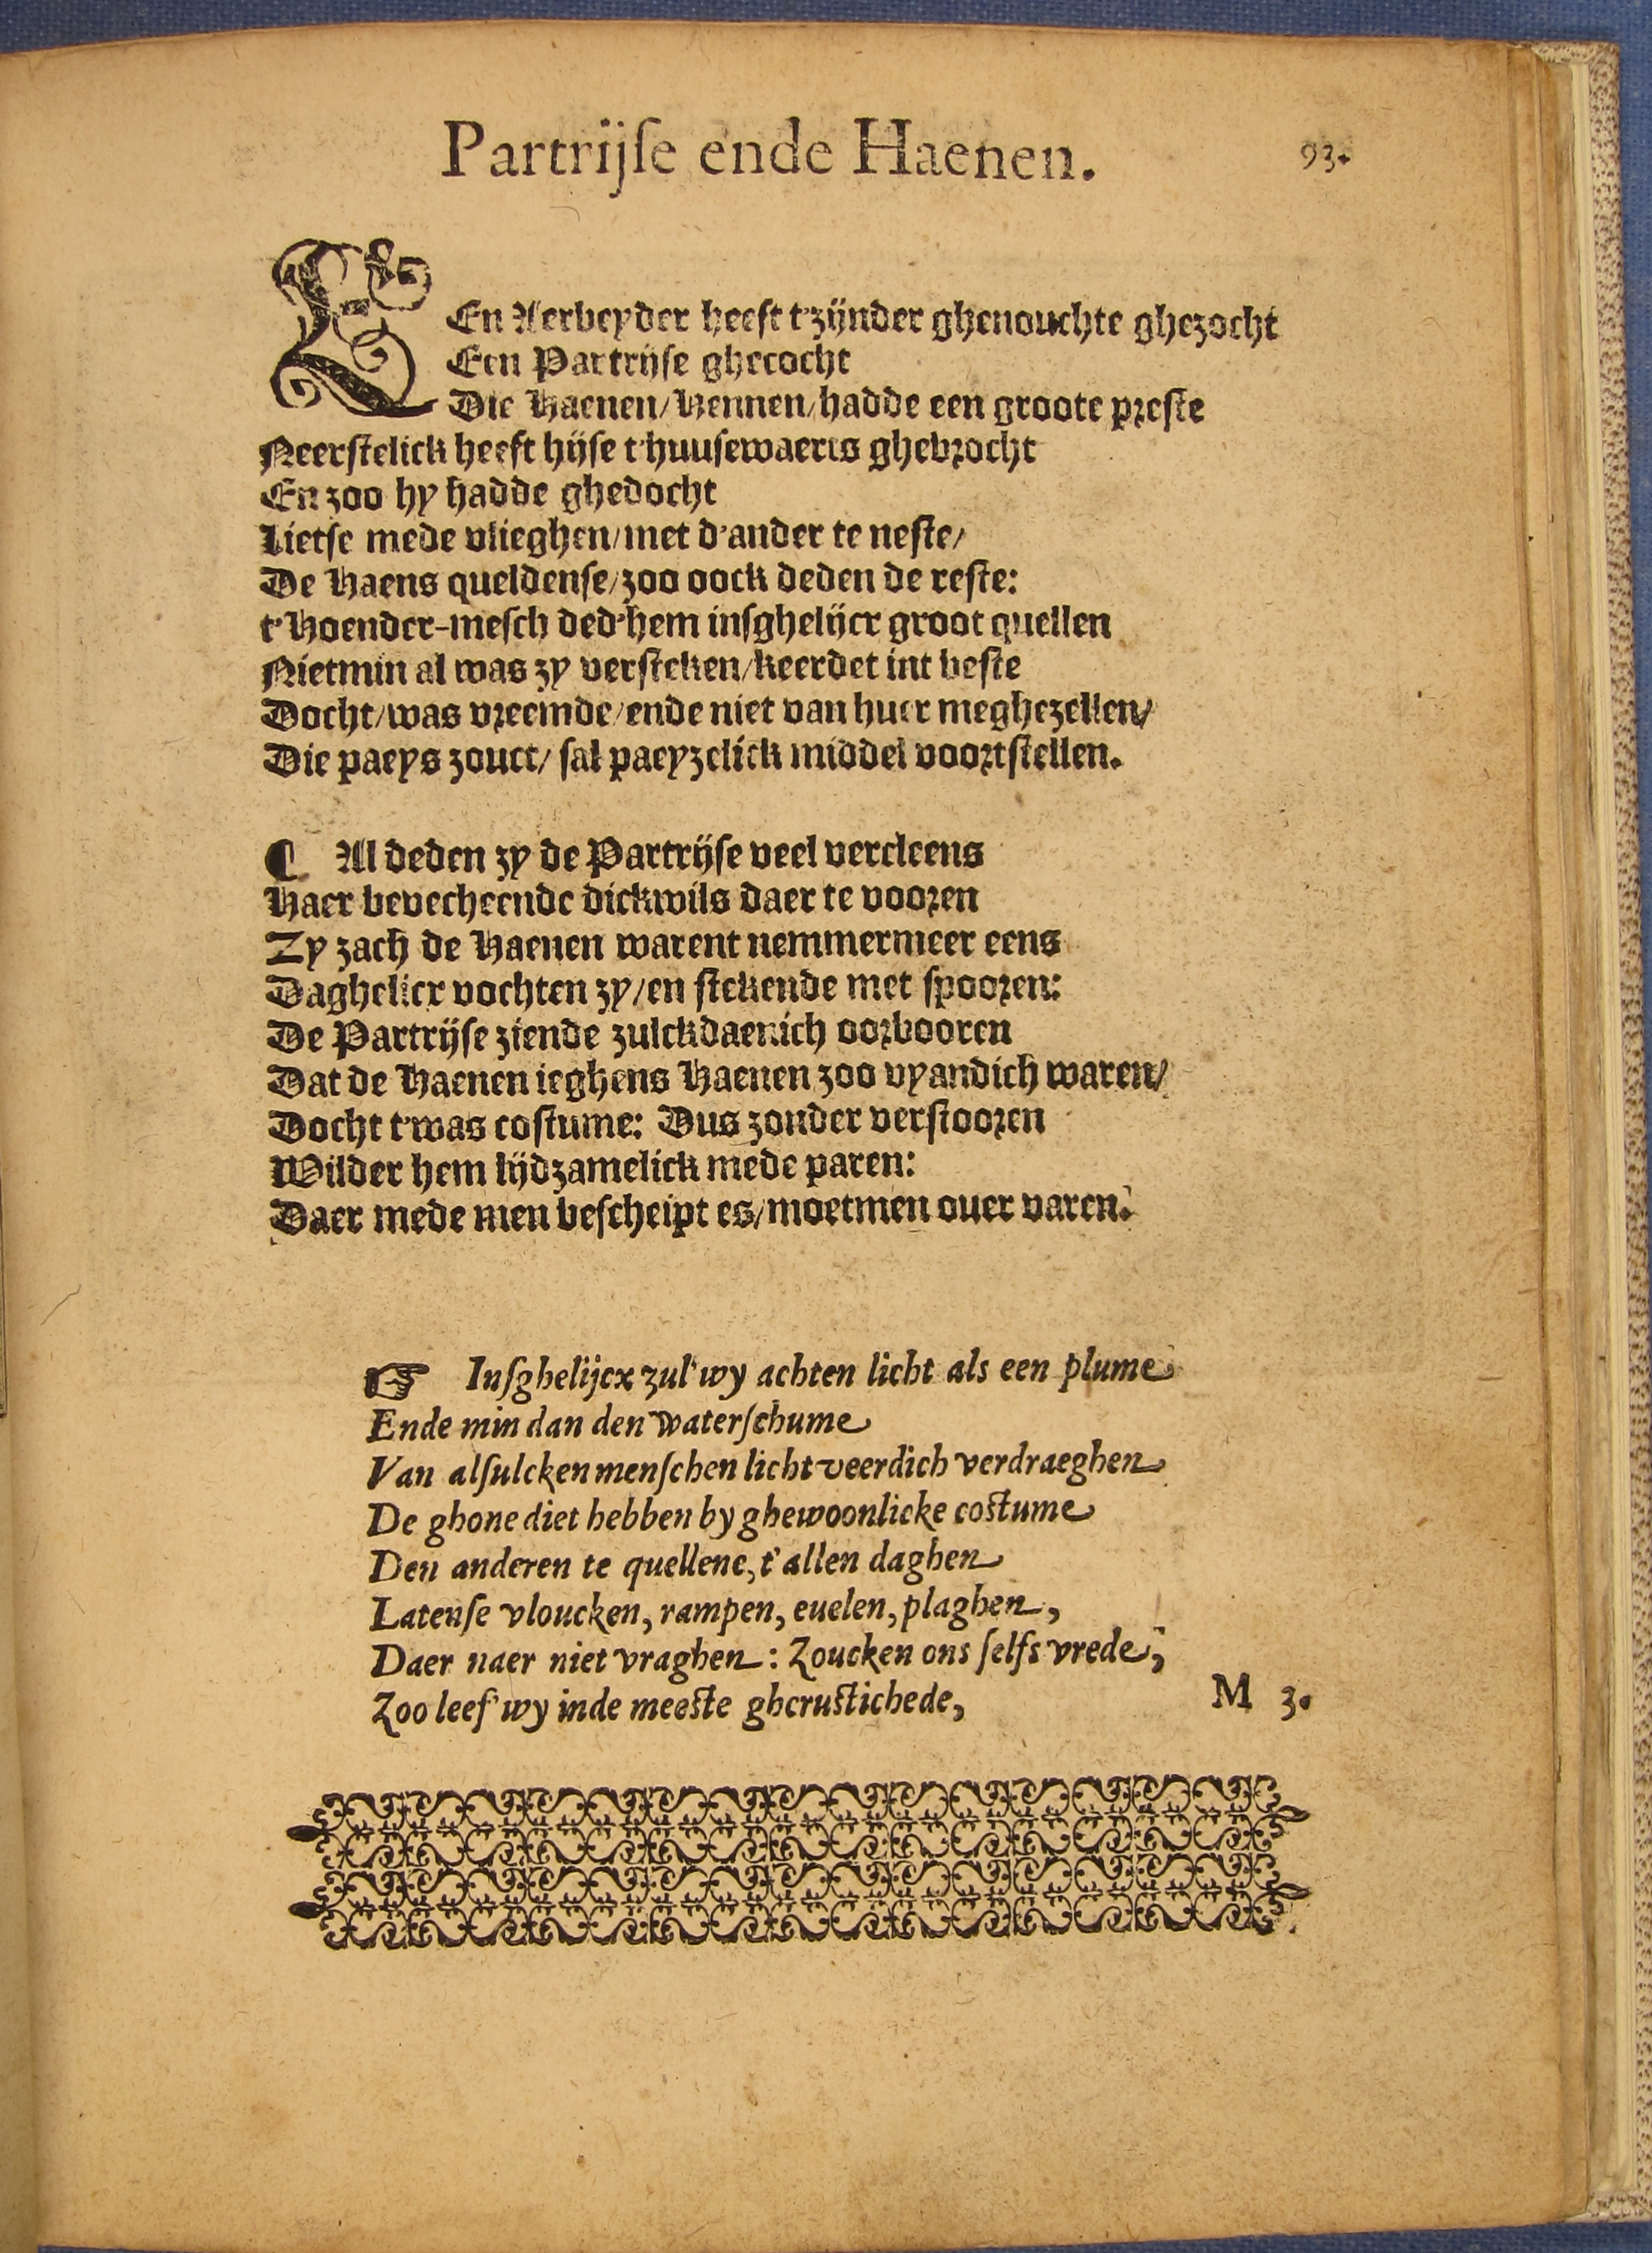 Partrijſe ende Haenen.
93.
EEn Aerbeyder heeft t'zijnder ghenouchte ghezocht
Een Partrijſe ghecocht
Die Haenen/Hennen/hadde een groote preſte
Neerſtelick heeft hijſe t'huuſewaerts ghebrocht
En zoo hy hadde ghedocht
Lietſe mede vlieghen/met d'ander te neſte/
De Haens queldenſe/zoo oock deden de reſte:
t'Hoender-meſch ded'hem inſghelijcx groot quellen
Nietmin al was zy verſteken/keerdet int beſte
Docht/was vreemde/ende niet van huer meghezellen/
Die paeys zouct/ ſal paeyzelick middel voortſtellen.
¶ Al deden zy de Partrijſe veel vercleens
Haer bevechtende dickwils daer te vooren
Zy zach de Haenen warent nemmermeer eens
Daghelicx vochten zy/en ſtekende met ſpooren:
De Partrijſe ziende zulckdaenich oorbooren
Dat de Haenen ieghens Haenen zoo vyandich waren/
Docht t'was coſtume: Dus zonder verſtooren
Wilder hem lijdzamelick mede paren:
Daer mede men beſcheipt es/moetmen ouer varen.
☞ Inſghelijcx zul'wy achten licht als een plume
Ende min dan den waterſchume
Van alſulcken menſchen lichtveerdich verdraeghen
De ghone diet hebben by ghewoonlicke coſtume
Den anderen te quellene, t'allen daghen
Latenſe vloucken, rampen, euelen, plaghen,
Daer naer niet vraghen: Zoucken ons ſelfs vrede,
Zoo leef'wy inde meeſte gheruſtichede,
M 3.